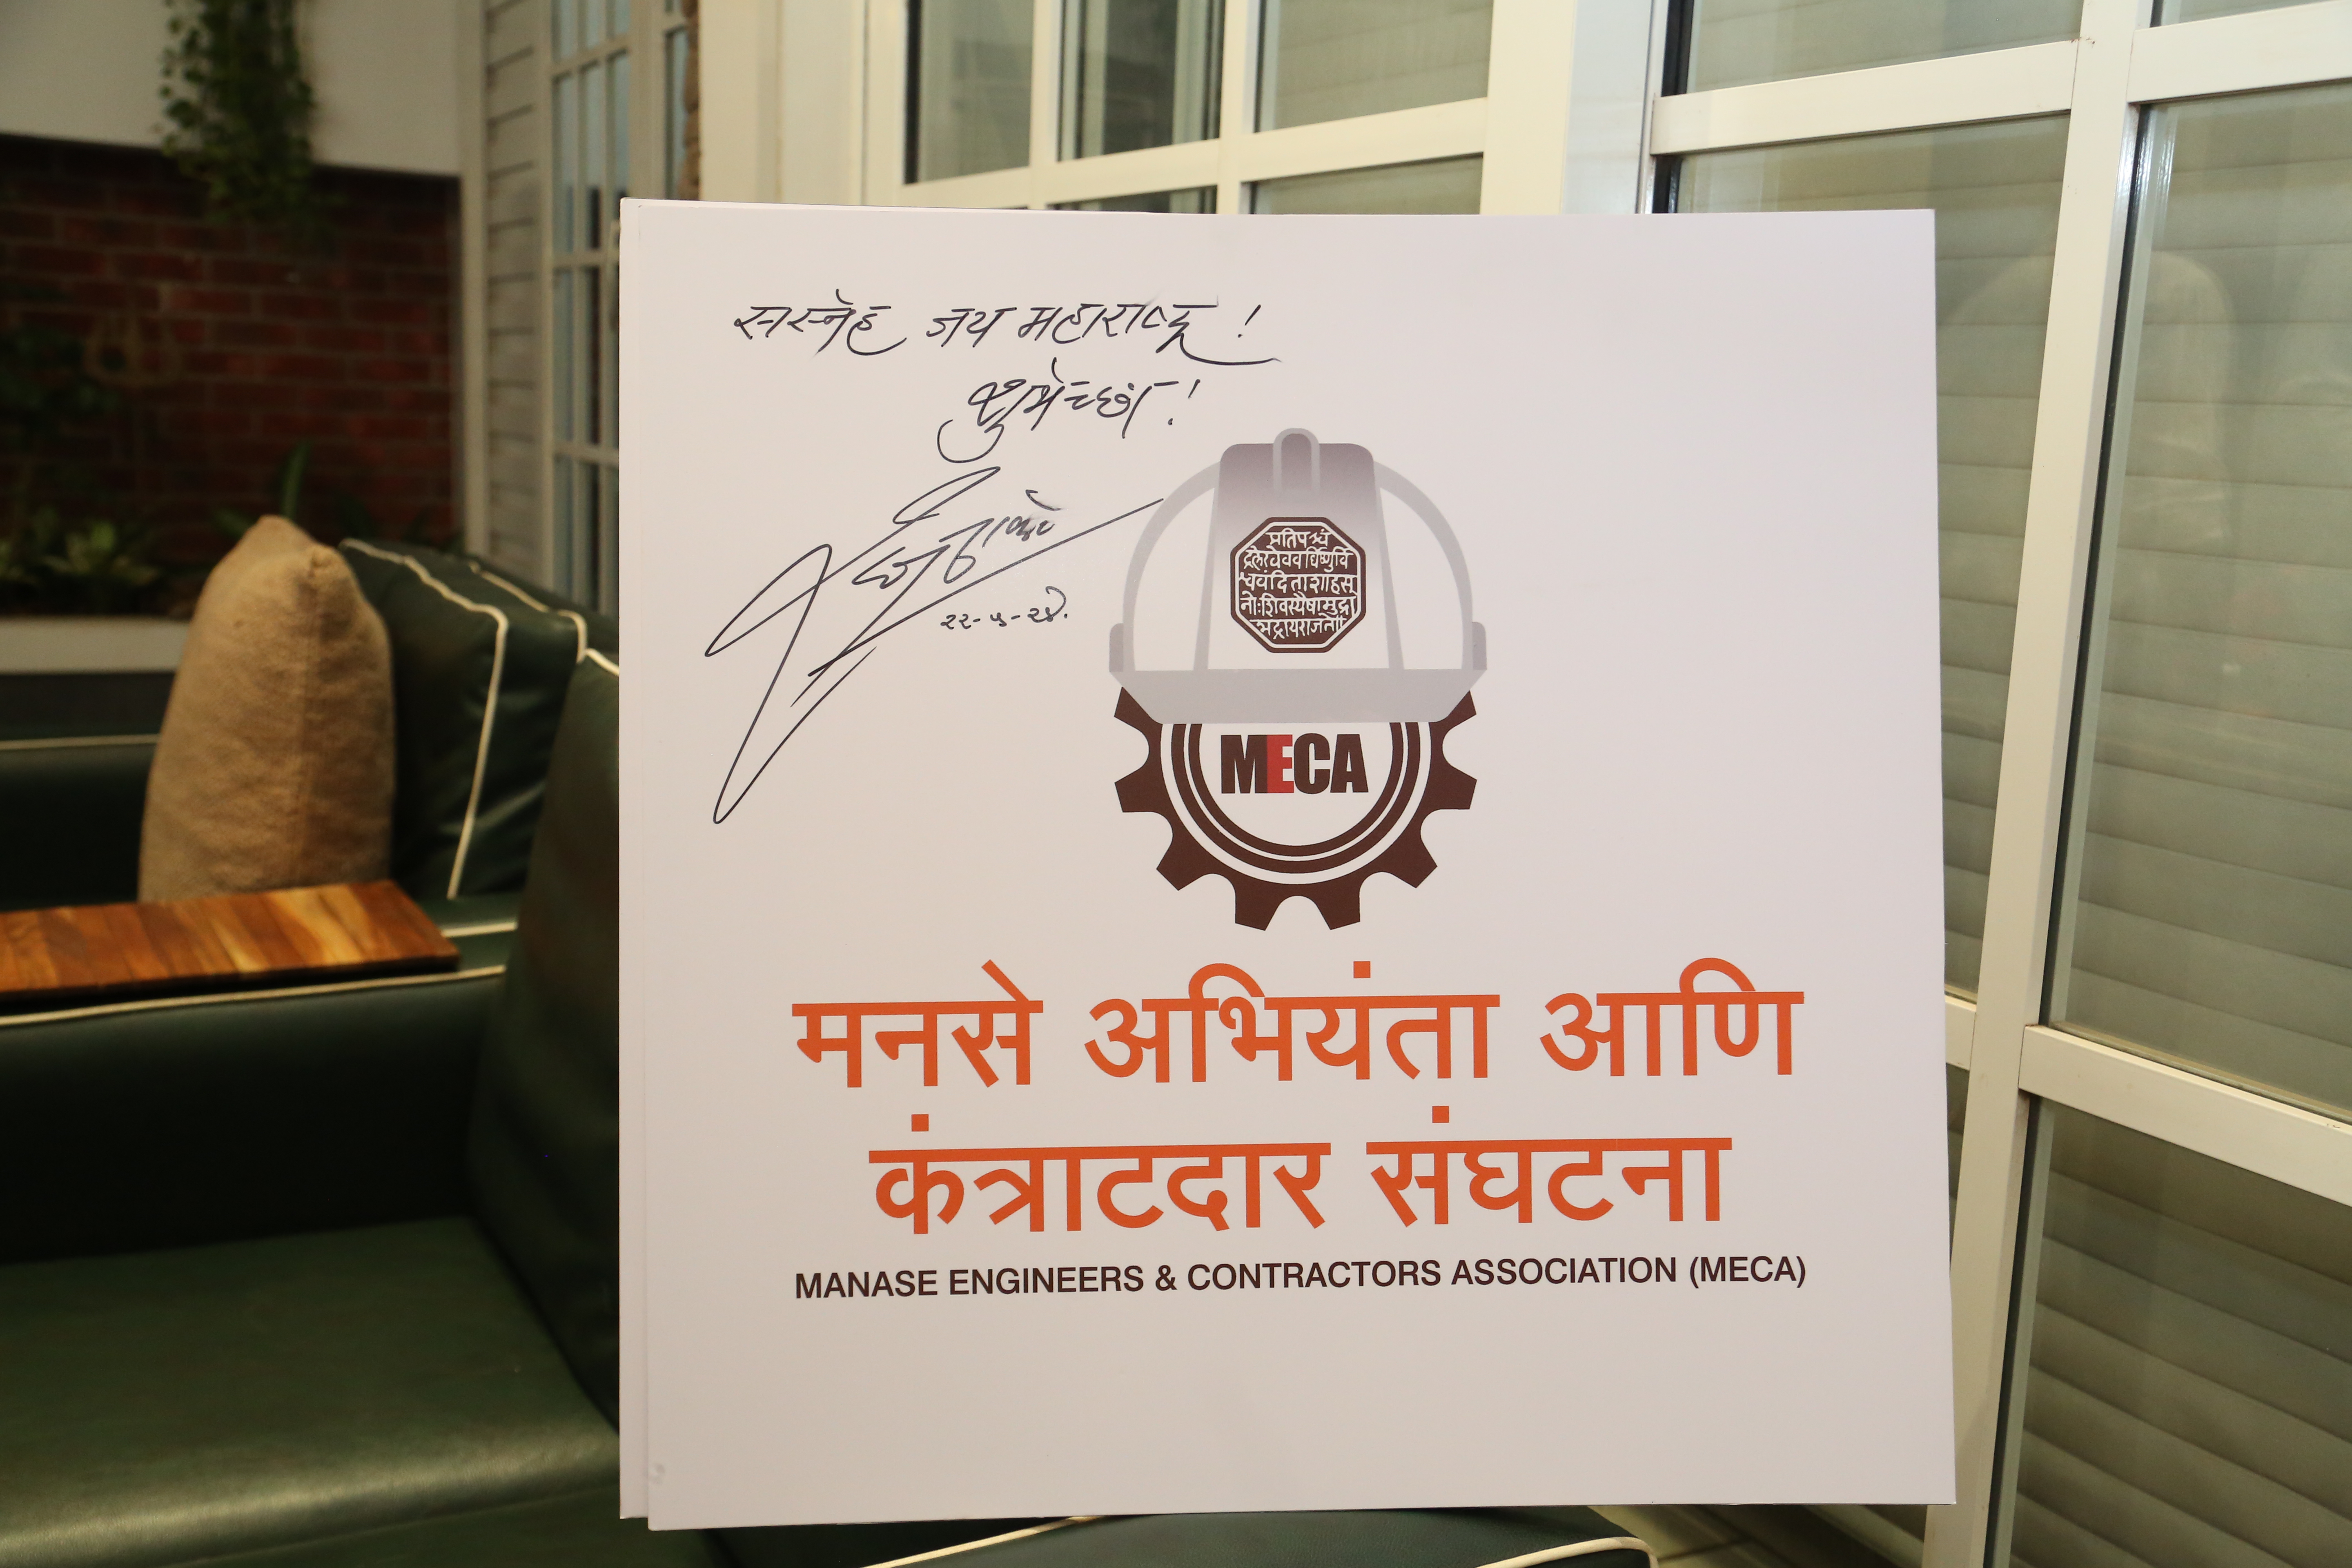 सस्नेह जय महाराष्ट्र !
शुभेच्छा !
२२-५-२४.
प्रतिपच्चं
द्रलेखेववर्धिष्णुर्वि
श्ववंदिताशाहसू
नोःशिवस्यैषामुद्रा
भद्रायराजते
MECA
मनसे अभियंता आणि
कंत्राटदार संघटना
MANASE ENGINEERS & CONTRACTORS ASSOCIATION (MECA)